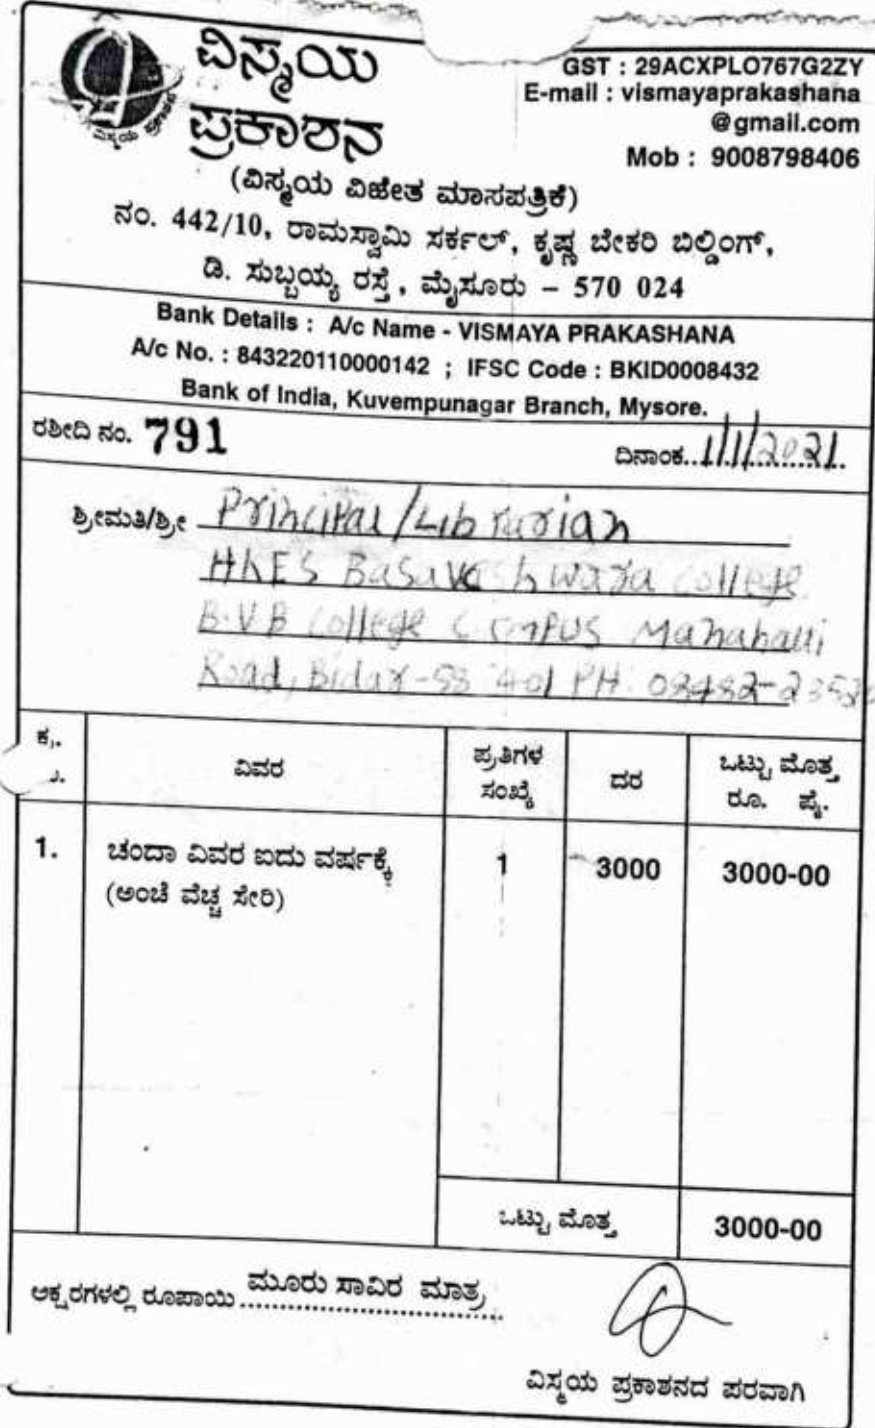 ವಿಸ್ಮಯ
ಪ್ರಕಾಶನ
ವಿಸ್ಮಯ ಪ್ರಕಾಶನ
GST : 29ACXPLO767G2ZY
E-mail : vismayaprakashana
@gmail.com
Mob : 9008798406
(ವಿಸ್ಮಯ ವಿಜೇತ ಮಾಸಪತ್ರಿಕೆ)
ನಂ. 442/10, ರಾಮಸ್ವಾಮಿ ಸರ್ಕಲ್, ಕೃಷ್ಣ ಬೇಕರಿ ಬಿಲ್ಡಿಂಗ್,
ಡಿ. ಸುಬ್ಬಯ್ಯ ರಸ್ತೆ, ಮೈಸೂರು – 570 024
Bank Details : A/c Name - VISMAYA PRAKASHANA
A/c No. : 843220110000142 ; IFSC Code : BKID0008432
Bank of India, Kuvempunagar Branch, Mysore.
ರಶೀದಿ ನಂ. 791 ದಿನಾಂಕ..1/1/2021
ಶ್ರೀಮತಿ/ಶ್ರೀ Principal/Librarian
HKES Basaveshwara college
B.V.B College Campus Manahalli
Road, Bidar PH: 08482-
ಕ್ರ. ವಿವರ ಪ್ರತಿಗಳ ಸಂಖ್ಯೆ ದರ ಒಟ್ಟು ಮೊತ್ತ ರೂ. ಪೈ.
1. ಚಂದಾ ವಿವರ ಐದು ವರ್ಷಕ್ಕೆ 1 3000 3000-00
(ಅಂಚೆ ವೆಚ್ಚ ಸೇರಿ)
ಒಟ್ಟು ಮೊತ್ತ 3000-00
ಅಕ್ಷರಗಳಲ್ಲಿ ರೂಪಾಯಿ ಮೂರು ಸಾವಿರ ಮಾತ್ರ
ವಿಸ್ಮಯ ಪ್ರಕಾಶನದ ಪರವಾಗಿ